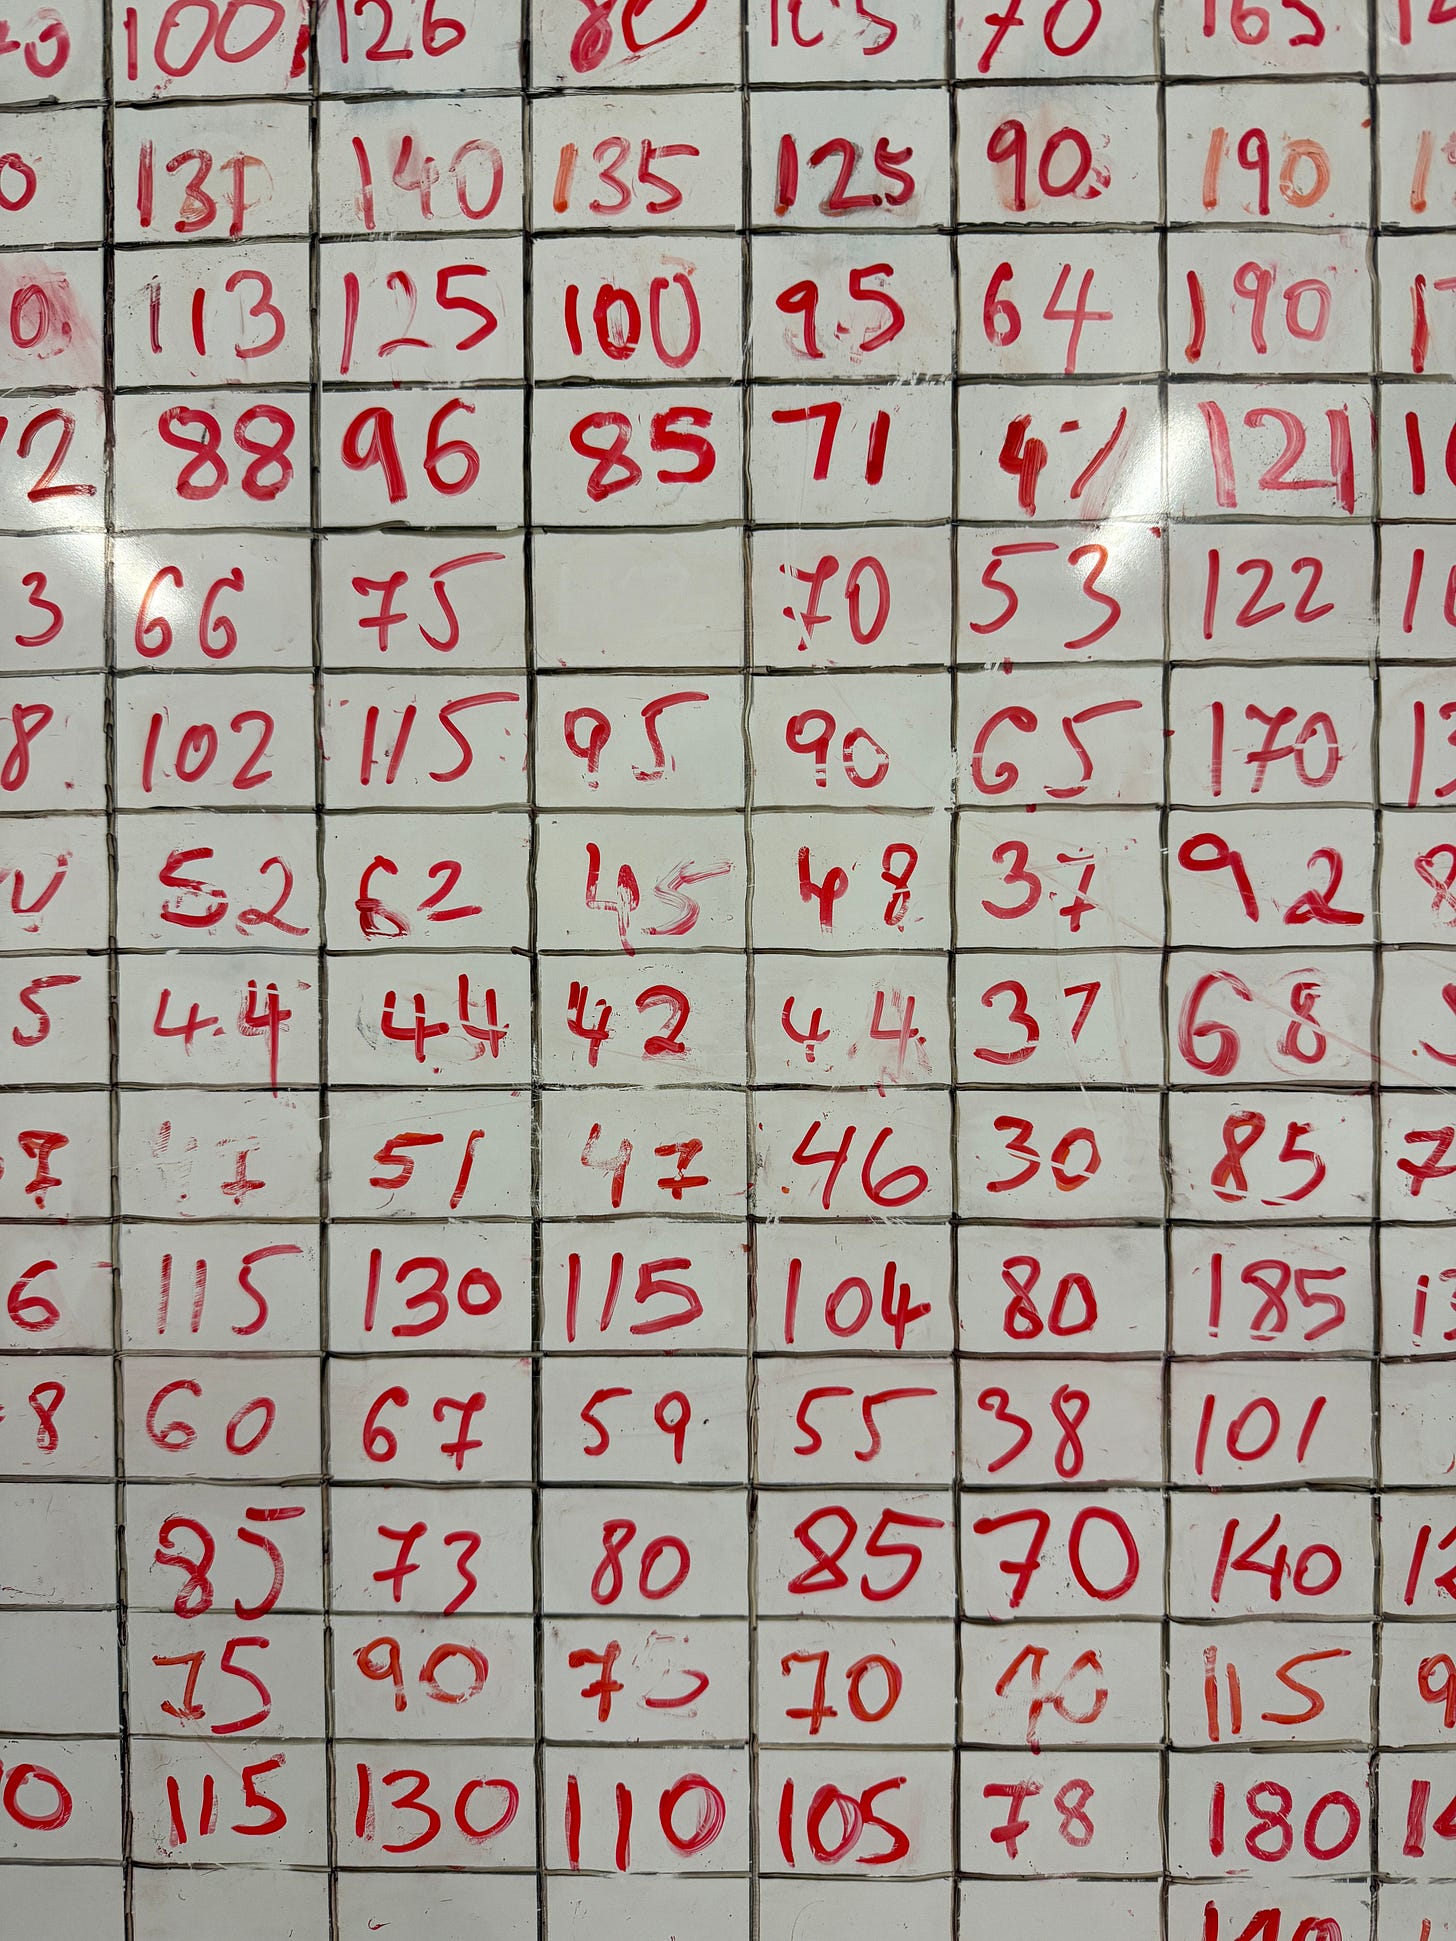 100 126 80 105 70 165
131 140 135 125 90 190
113 125 100 95 64 190
2 88 96 85 71 47 121
3 66 75 70 53 122
8 102 115 95 90 65 170
52 62 45 48 37 92
5 44 44 42 44 37 68
7 47 51 47 46 30 85
6 115 130 115 104 80 185
8 60 67 59 55 38 101
85 73 80 85 70 140
75 90 75 70 40 115
0 115 130 110 105 78 180